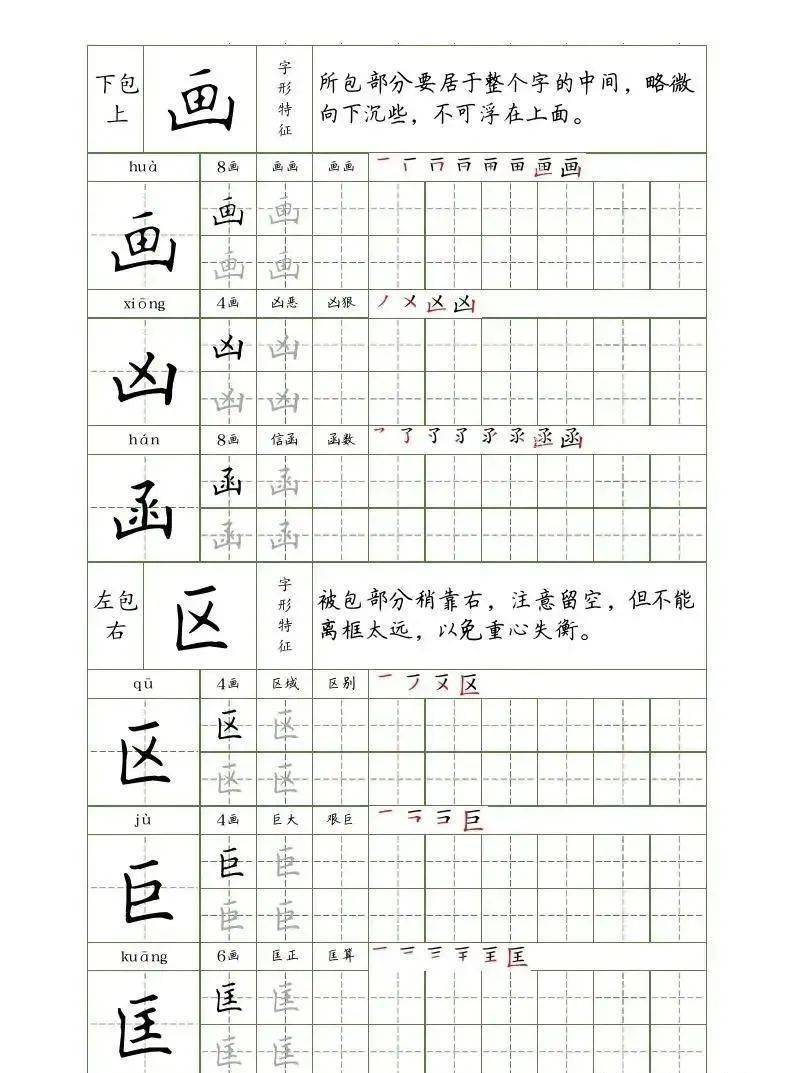 下包上 画 字形特征 所包部分要居于整个字的中间，略微
向下沉些，不可浮在上面。
huà 8画 画画 画画
画 画 画
画 画
xiōng 4画 凶恶 凶狠
凶 凶 凶
凶 凶
hán 8画 信函 函数
函 函 函
函 函
左包右 区 字形特征 被包部分稍靠右，注意留空，但不能
离框太远，以免重心失衡。
qū 4画 区域 区别
区 区 区
区 区
jù 4画 巨大 艰巨
巨 巨 巨
巨 巨
kuāng 6画 匡正 匡算
匡 匡 匡
匡 匡